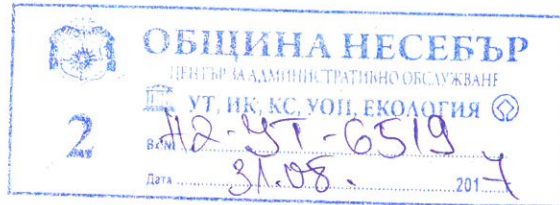 ОБЩИНА НЕСЕБЪР
ЦЕНТЪР ЗА АДМИНИСТРАТИВНО ОБСЛУЖВАНЕ
УТ, ИК, КС, УОП, ЕКОЛОГИЯ
2
Вх.№ Н2-УТ-6519
Дата 31.08. 2017